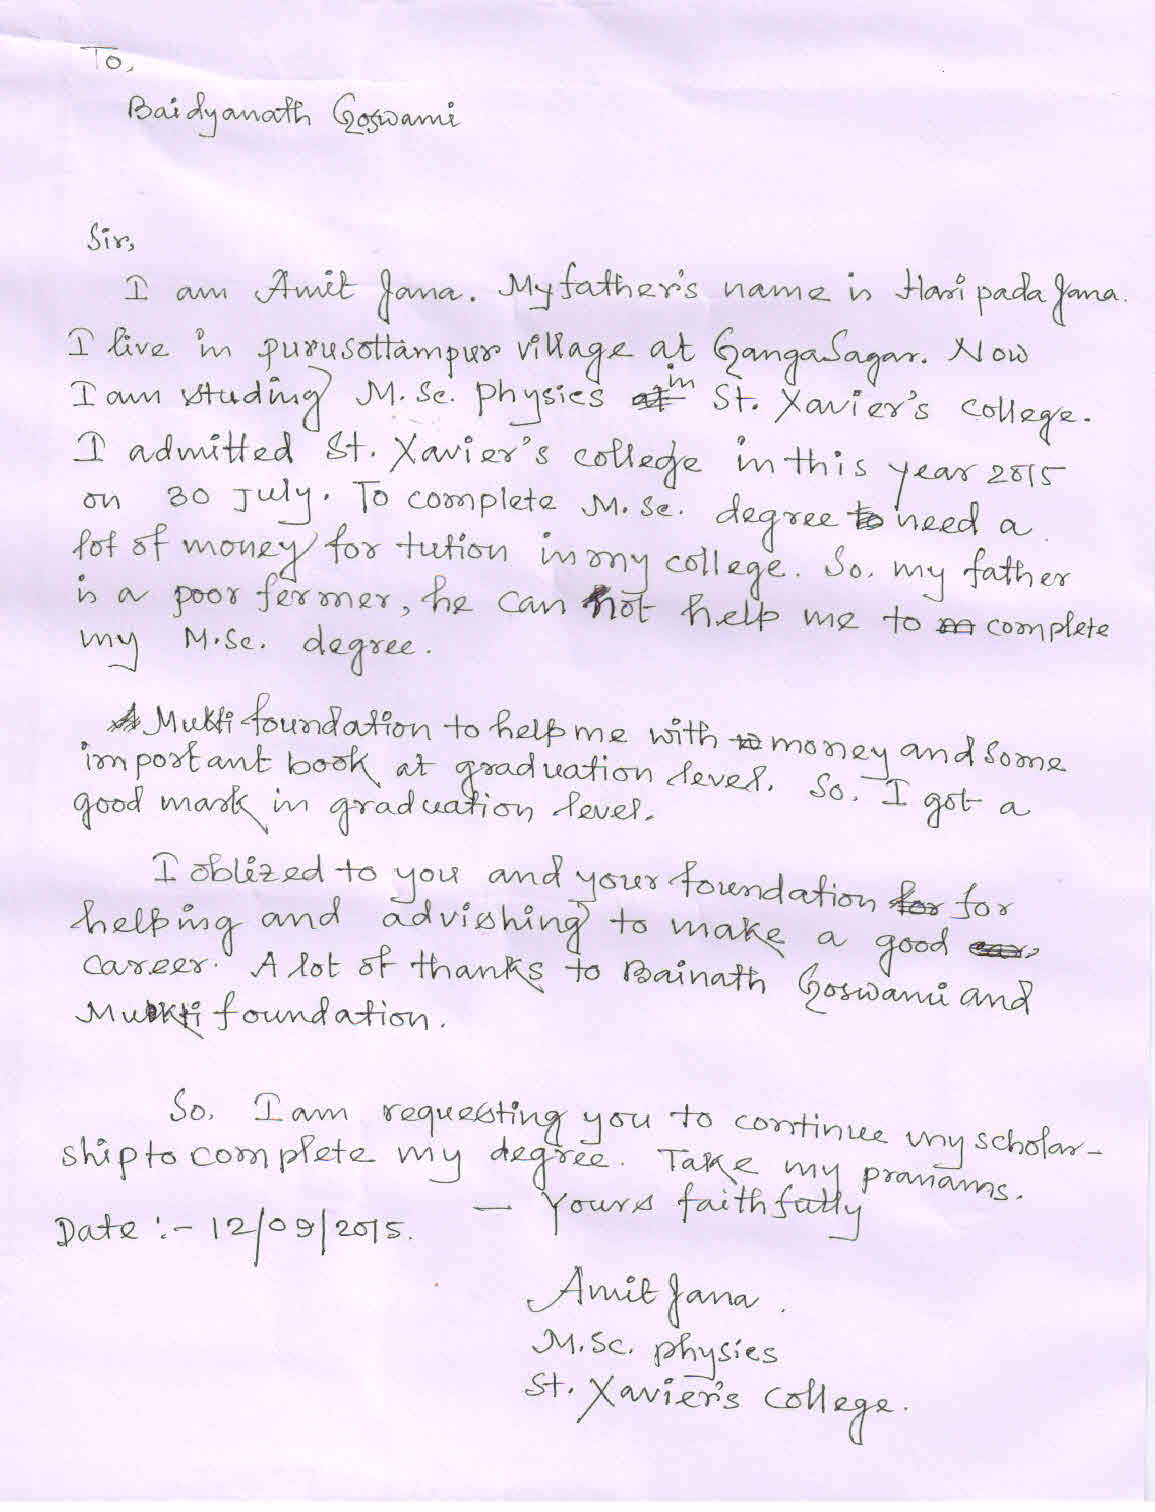 To,
Baidyanath Goswami
Sir,
I am Amit Jana. My father's name is Hari pada Jana.
I live in purusottampur village at GangaSagar. Now
I am studing M.Sc. physics in St. Xavier's college.
I admitted St. Xavier's college in this year 2015
on 30 July. To complete M.Sc. degree to need a
lot of money for tution in my college. So. my father
is a poor fermer, he can not help me to complete
my M.Sc. degree.
Mukti foundation to help me with money and some
important book at graduation level. So. I got a
good mark in graduation level.
I oblized to you and your foundation for
helping and advishing to make a good
career. A lot of thanks to Bainath Goswami and
Mukti foundation.
So. I am requesting you to continue my scholar-
ship to complete my degree. Take my pranams.
— Yours faithfully
Date :- 12/09/2015.
Amit Jana.
M.Sc. physics
St. Xavier's college.